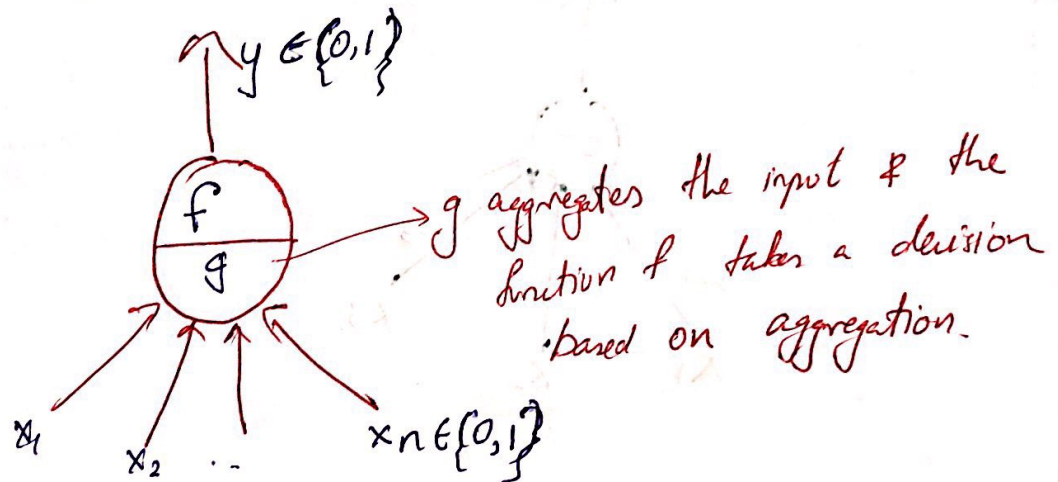 y ∈ {0,1}
f
g
g aggregates the input & the
function f takes a decision
based on aggregation.
x₁ x₂ .. xn ∈ {0,1}